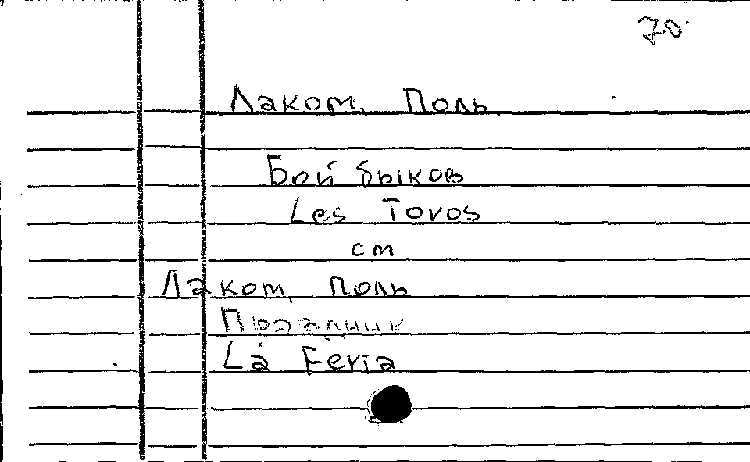 70
Лаком, Поль
Бой быков
Les Toros
см
Лаком, Поль
Праздник
La Feria